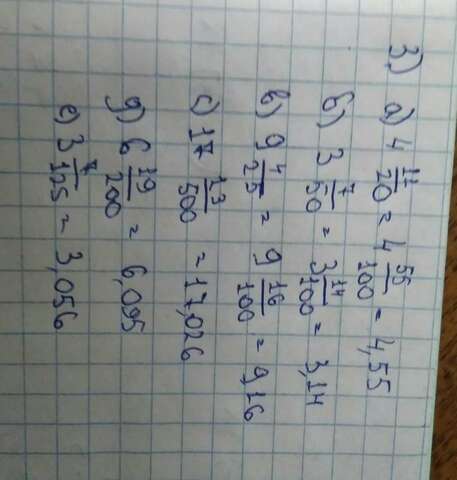 3) а) 4 11/20 = 4 55/100 = 4,55
б) 3 7/50 = 3 14/100 = 3,14
в) 9 4/25 = 9 16/100 = 9,16
с) 17 13/500 = 17,026
д) 6 19/200 = 6,095
е) 3 7/125 = 3,056